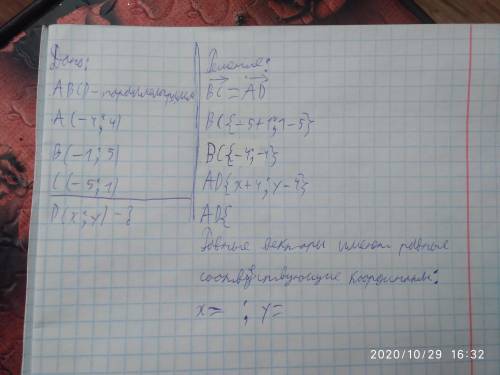 Дано:
ABCD - параллелограмм
A(-4;4)
B(-1;5)
C(-5;1)
D(x;y) - ?
Решение:
BC = AD
BC{-5+1;1-5}
BC{-4;-4}
AD{x+4;y-4}
AD{
Равные векторы имеют равные
соответствующие координаты:
x= ; y=
2020/10/29 16:32